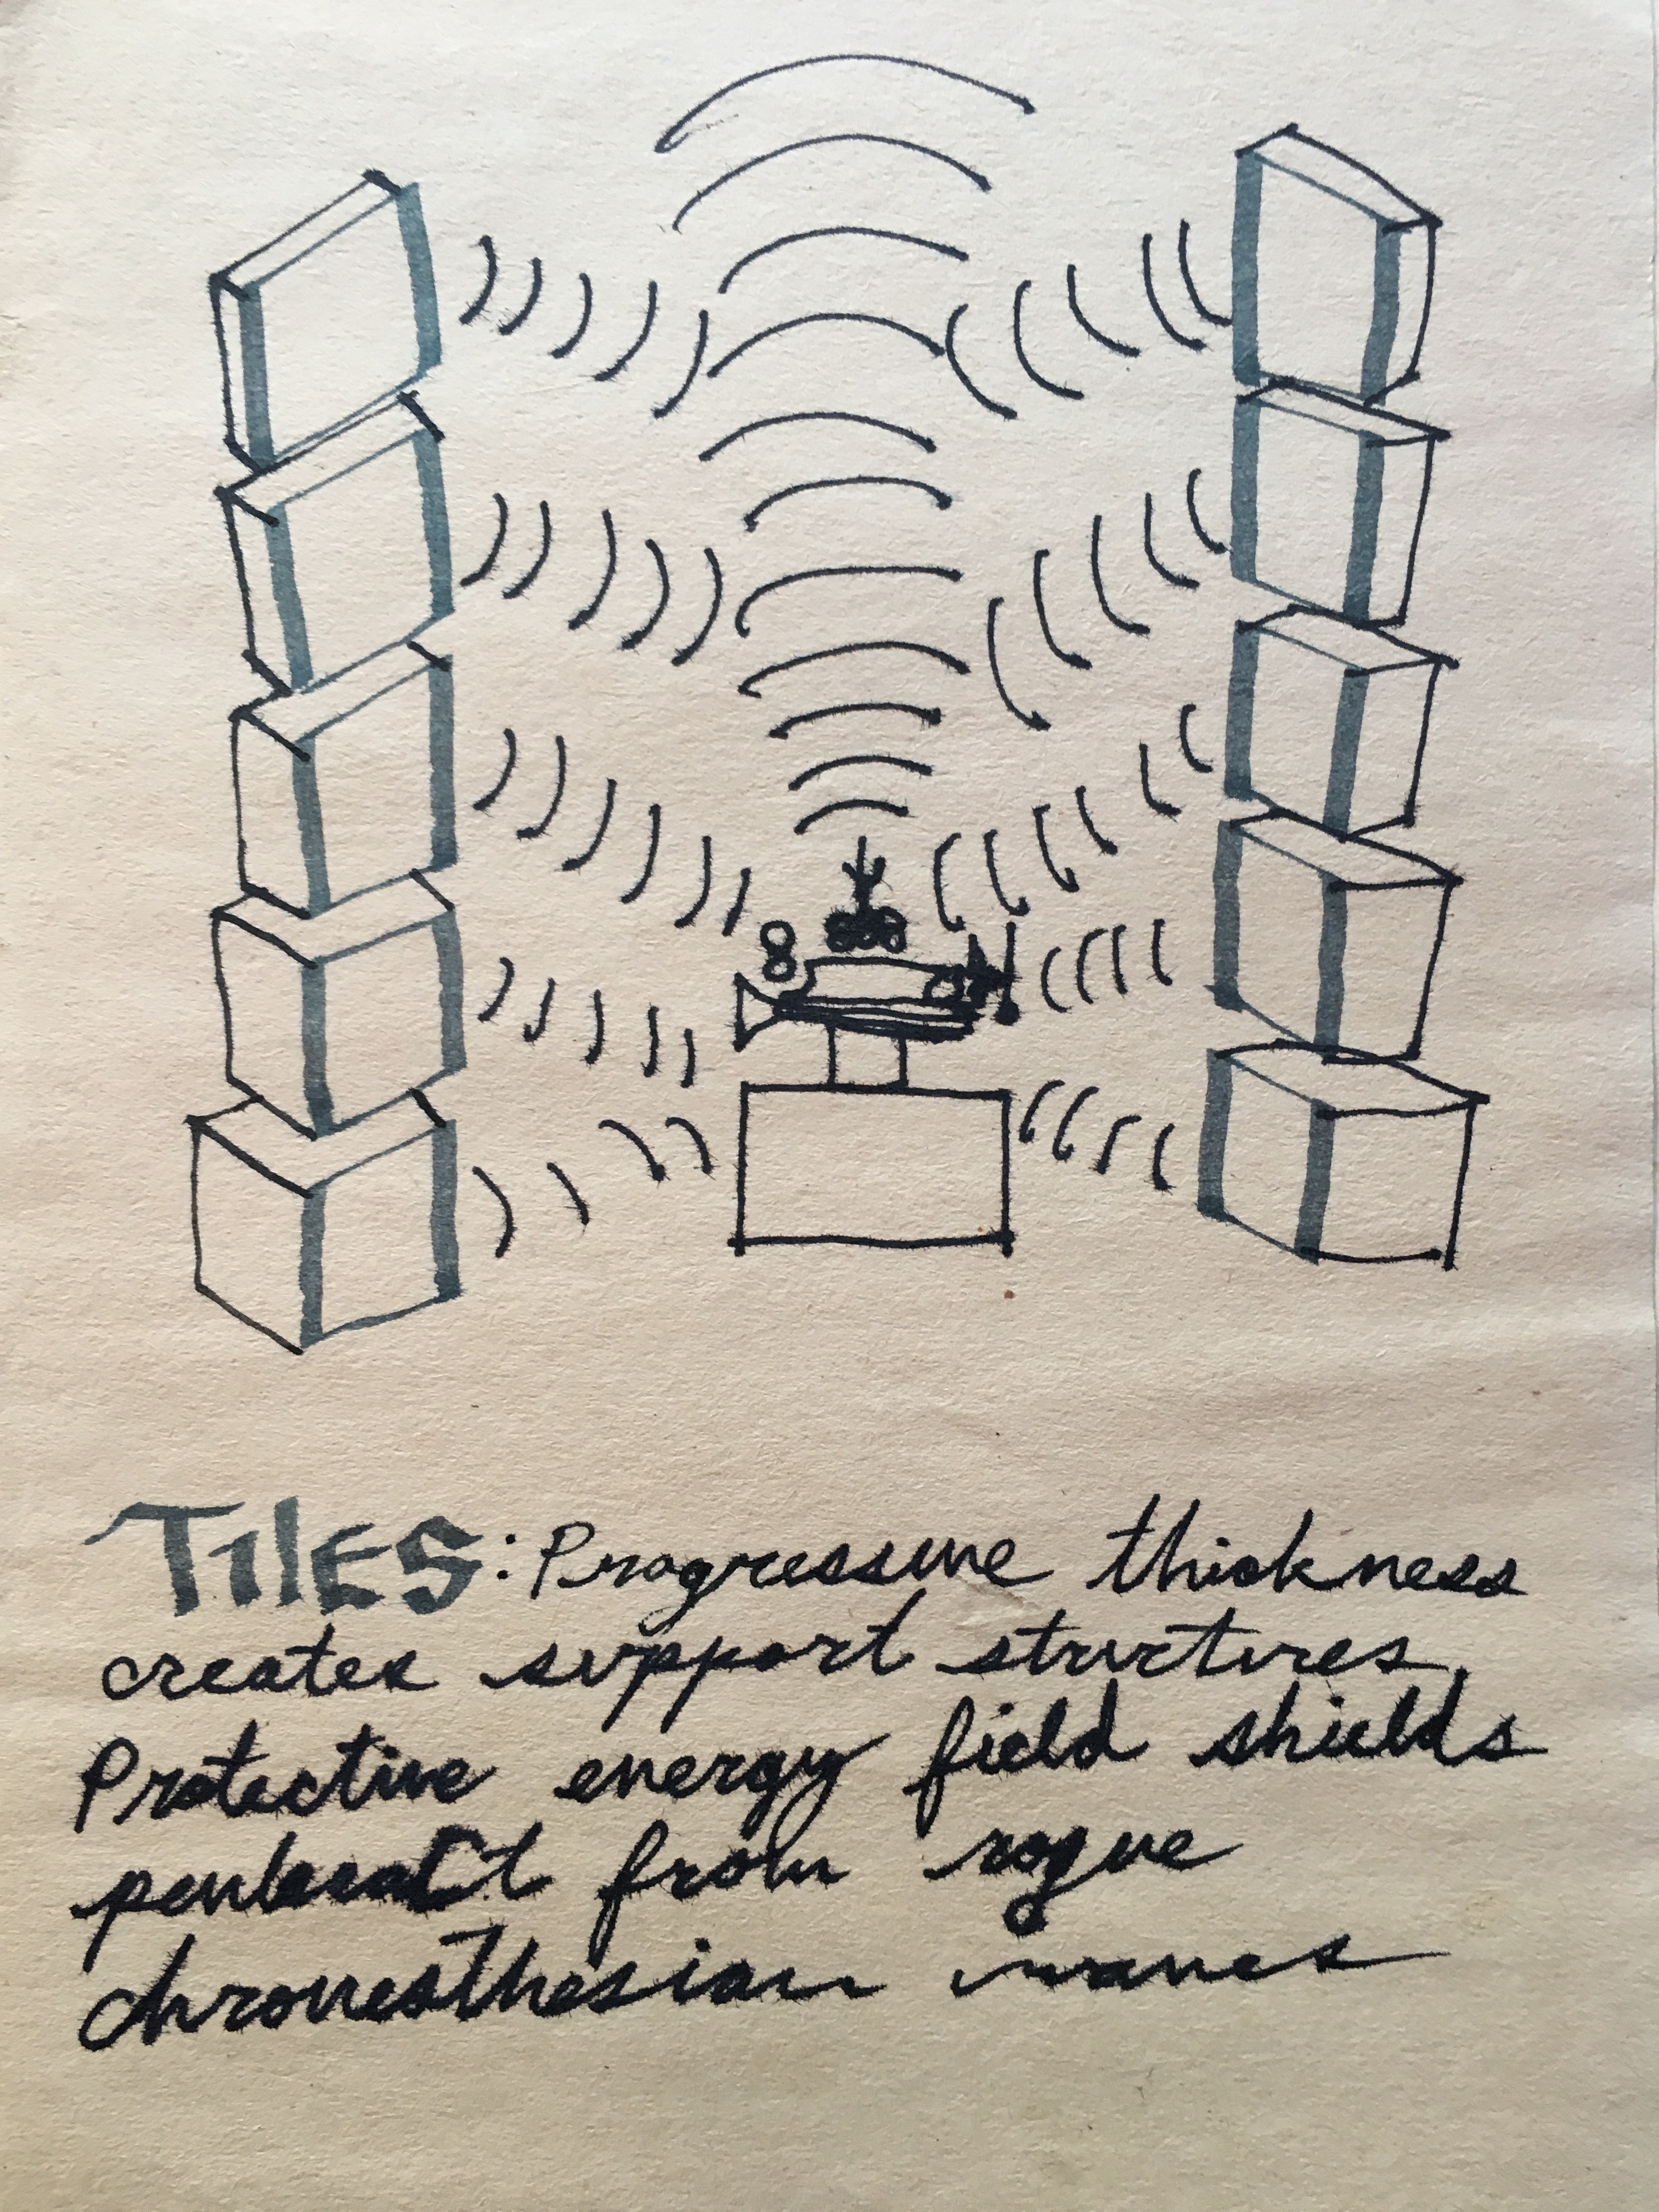 8
TILES: Progressive thickness
creates support structures.
Protective energy field shields
penteract from rogue
chronesthesian waves